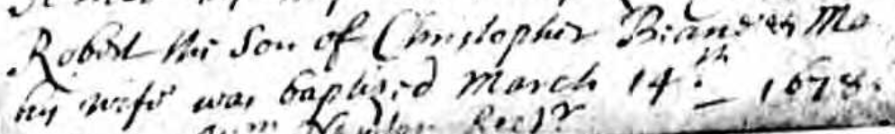 Robert the Son of Christopher Ma
his wife was baptized March 14th 1678.
Rectr